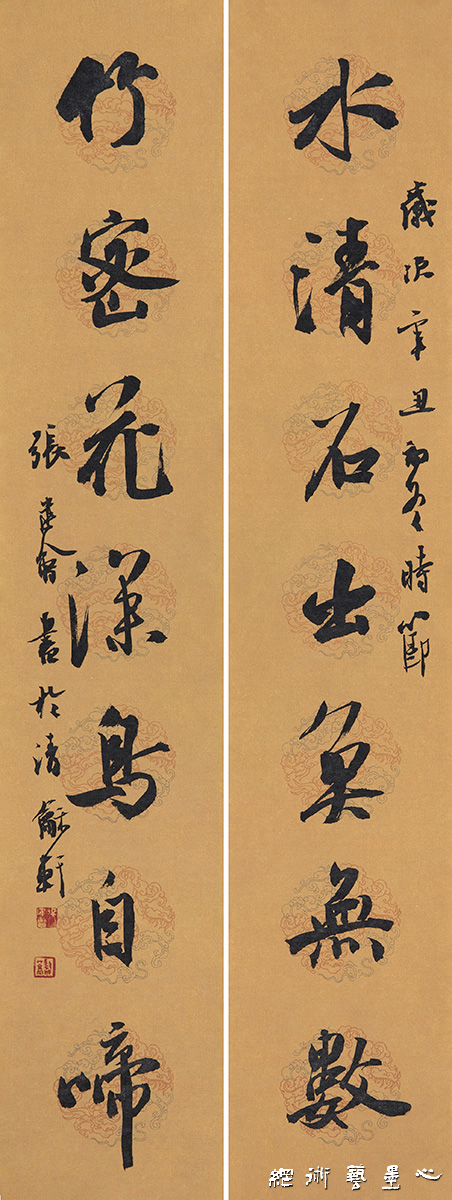 水清石出魚無數
歲次辛丑初冬時節
竹密花深鳥自啼
張書於清龢軒
心墨藝術網